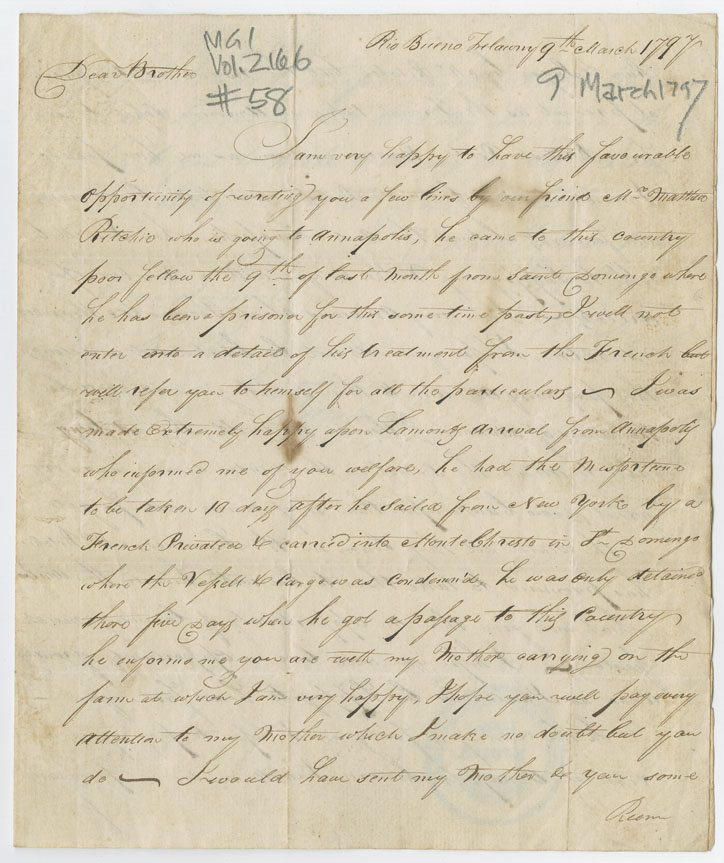 Rio Bueno Trelawny 9th March 1797
MG1
Vol. 2166
#58
9 March 1797
Dear Brother
I am very happy to have this favourable
opportunity of wreting you a few lines by our friend Mr Mathew
Ritchie who is going to Annapolis, he came to this Country
poor fellow the 9th of last Month from Saint Domingo where
he has been a prisoner for this some time past, I will not
enter into a detail of his treatment from the French but
will refer you to himself for all the particulars — I was
made Extremely happy upon Lamonts arrival from Annapolis
who informed me of you welfare, he had the Misfortune
to be taken 10 days after he sailed from New York by a
French Privateer & carried into Monte Christo in St Domingo
where the Vessell & Cargo was Condemn'd he was only detained
there five Days when he got a passage to this Country
he informs me you are with my Mother carrying on the
farm at which I am very happy, I hope you will pay every
attention to my Mother which I make no doubt but you
do — I would have sent my Mother & you some
Rum